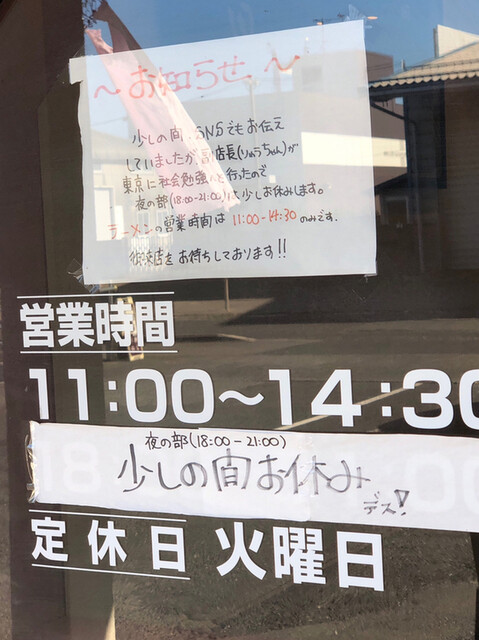 ～お知らせ～
少しの間、SNSでもお伝え
していましたが、副店長(りゅうちゃん)が
東京に社会勉強へと行ったので
夜の部(18:00-21:00)は少しお休みします。
ラーメンの営業時間は 11:00-14:30 のみです。
御来店をお待ちしております!!
営業時間
11:00～14:30
夜の部(18:00-21:00)
少しの間お休み
デス!
定休日 火曜日